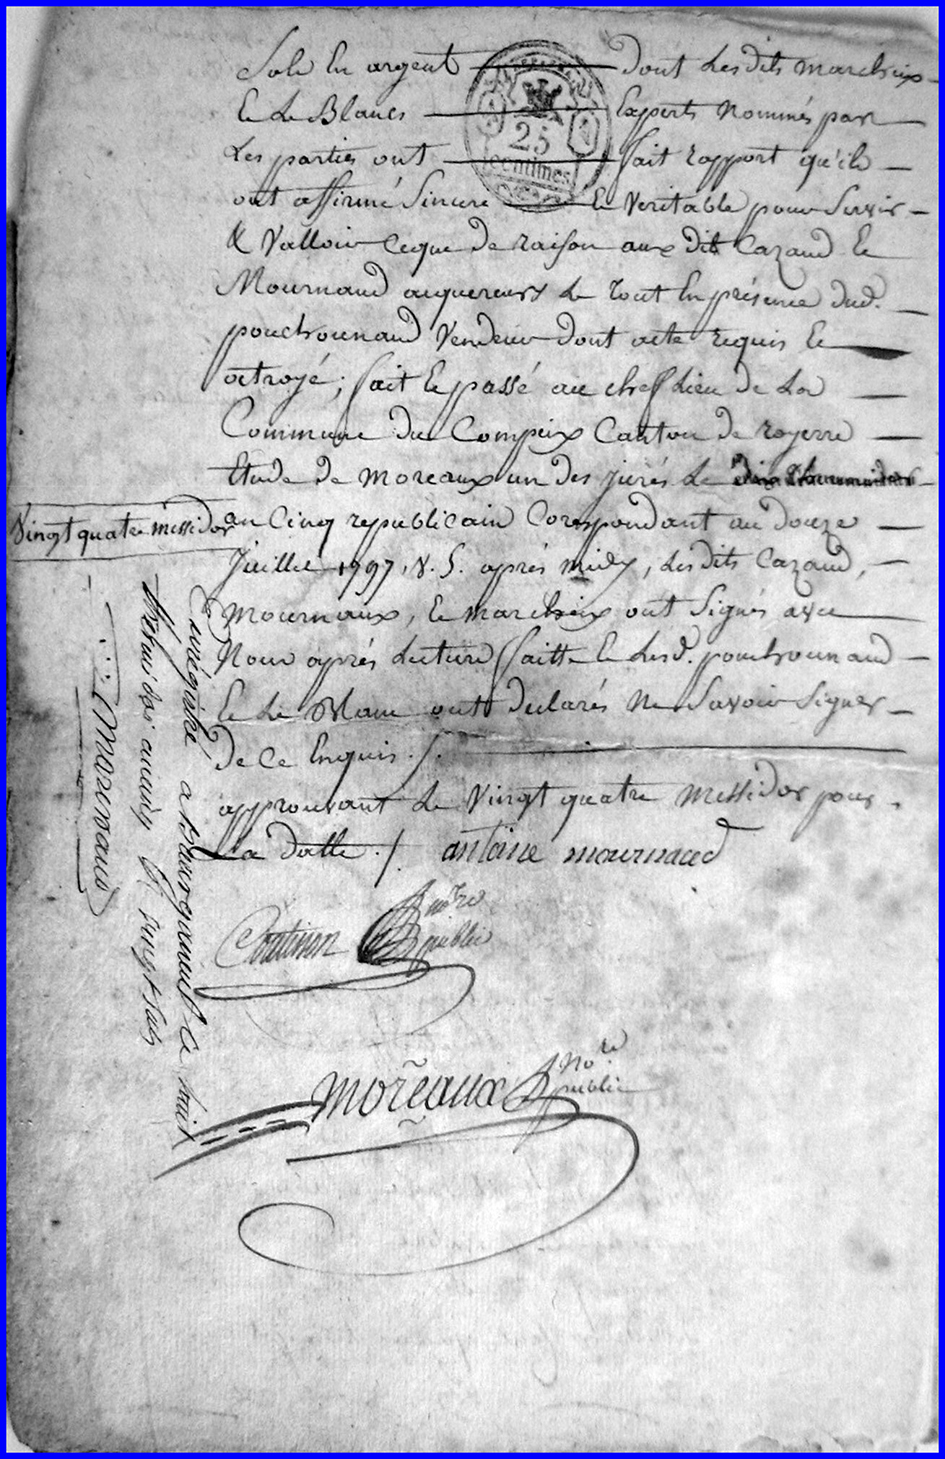 Sols en argent dont lesdits marcheix
Et Le Blanc Experts nommés par
Les parties ont fait rapport qu'ils
25
centimes
ont affirmé sincere Et veritable pour servir
& valloir ceque de raison aux dits Cazaud Et
Mournaud acquereurs Le tout En présence dud.
pouchounaud vendeur dont acte requis Et
octroyé; fait Et passé au chef lieu de La
Commune du Compeix Canton de royerre
Etude de moreaux un des jurés Le
Vingt quatre messidor
an Cinq republicain Corespondant au douze
Juillet 1797, V. S. après midy, Lesdits Cazaud,
mournaux, Et marcheix ont signés avec
Nous après Lecture faitte Et Lesd. pouchounaud
Et Le Blanc ont declarés ne savoir signer
de ce Enquis ./.
approuvant Le Vingt quatre messidor pour
La datte ./. antoine mournaud
Coutisson
nore
public
moreaux
nore
public
Enrégistré a Bourganeuf Le huit
Thermidor an cinq